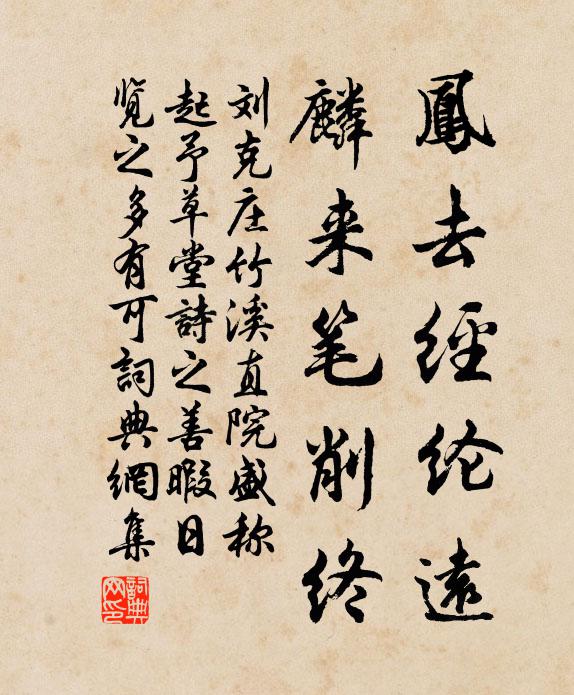 鳳去經纶遠
麟来笔削终
刘克庄竹溪直院盛称
起予草堂詩之善暇日
览之多有可詞典網集
詞典网印